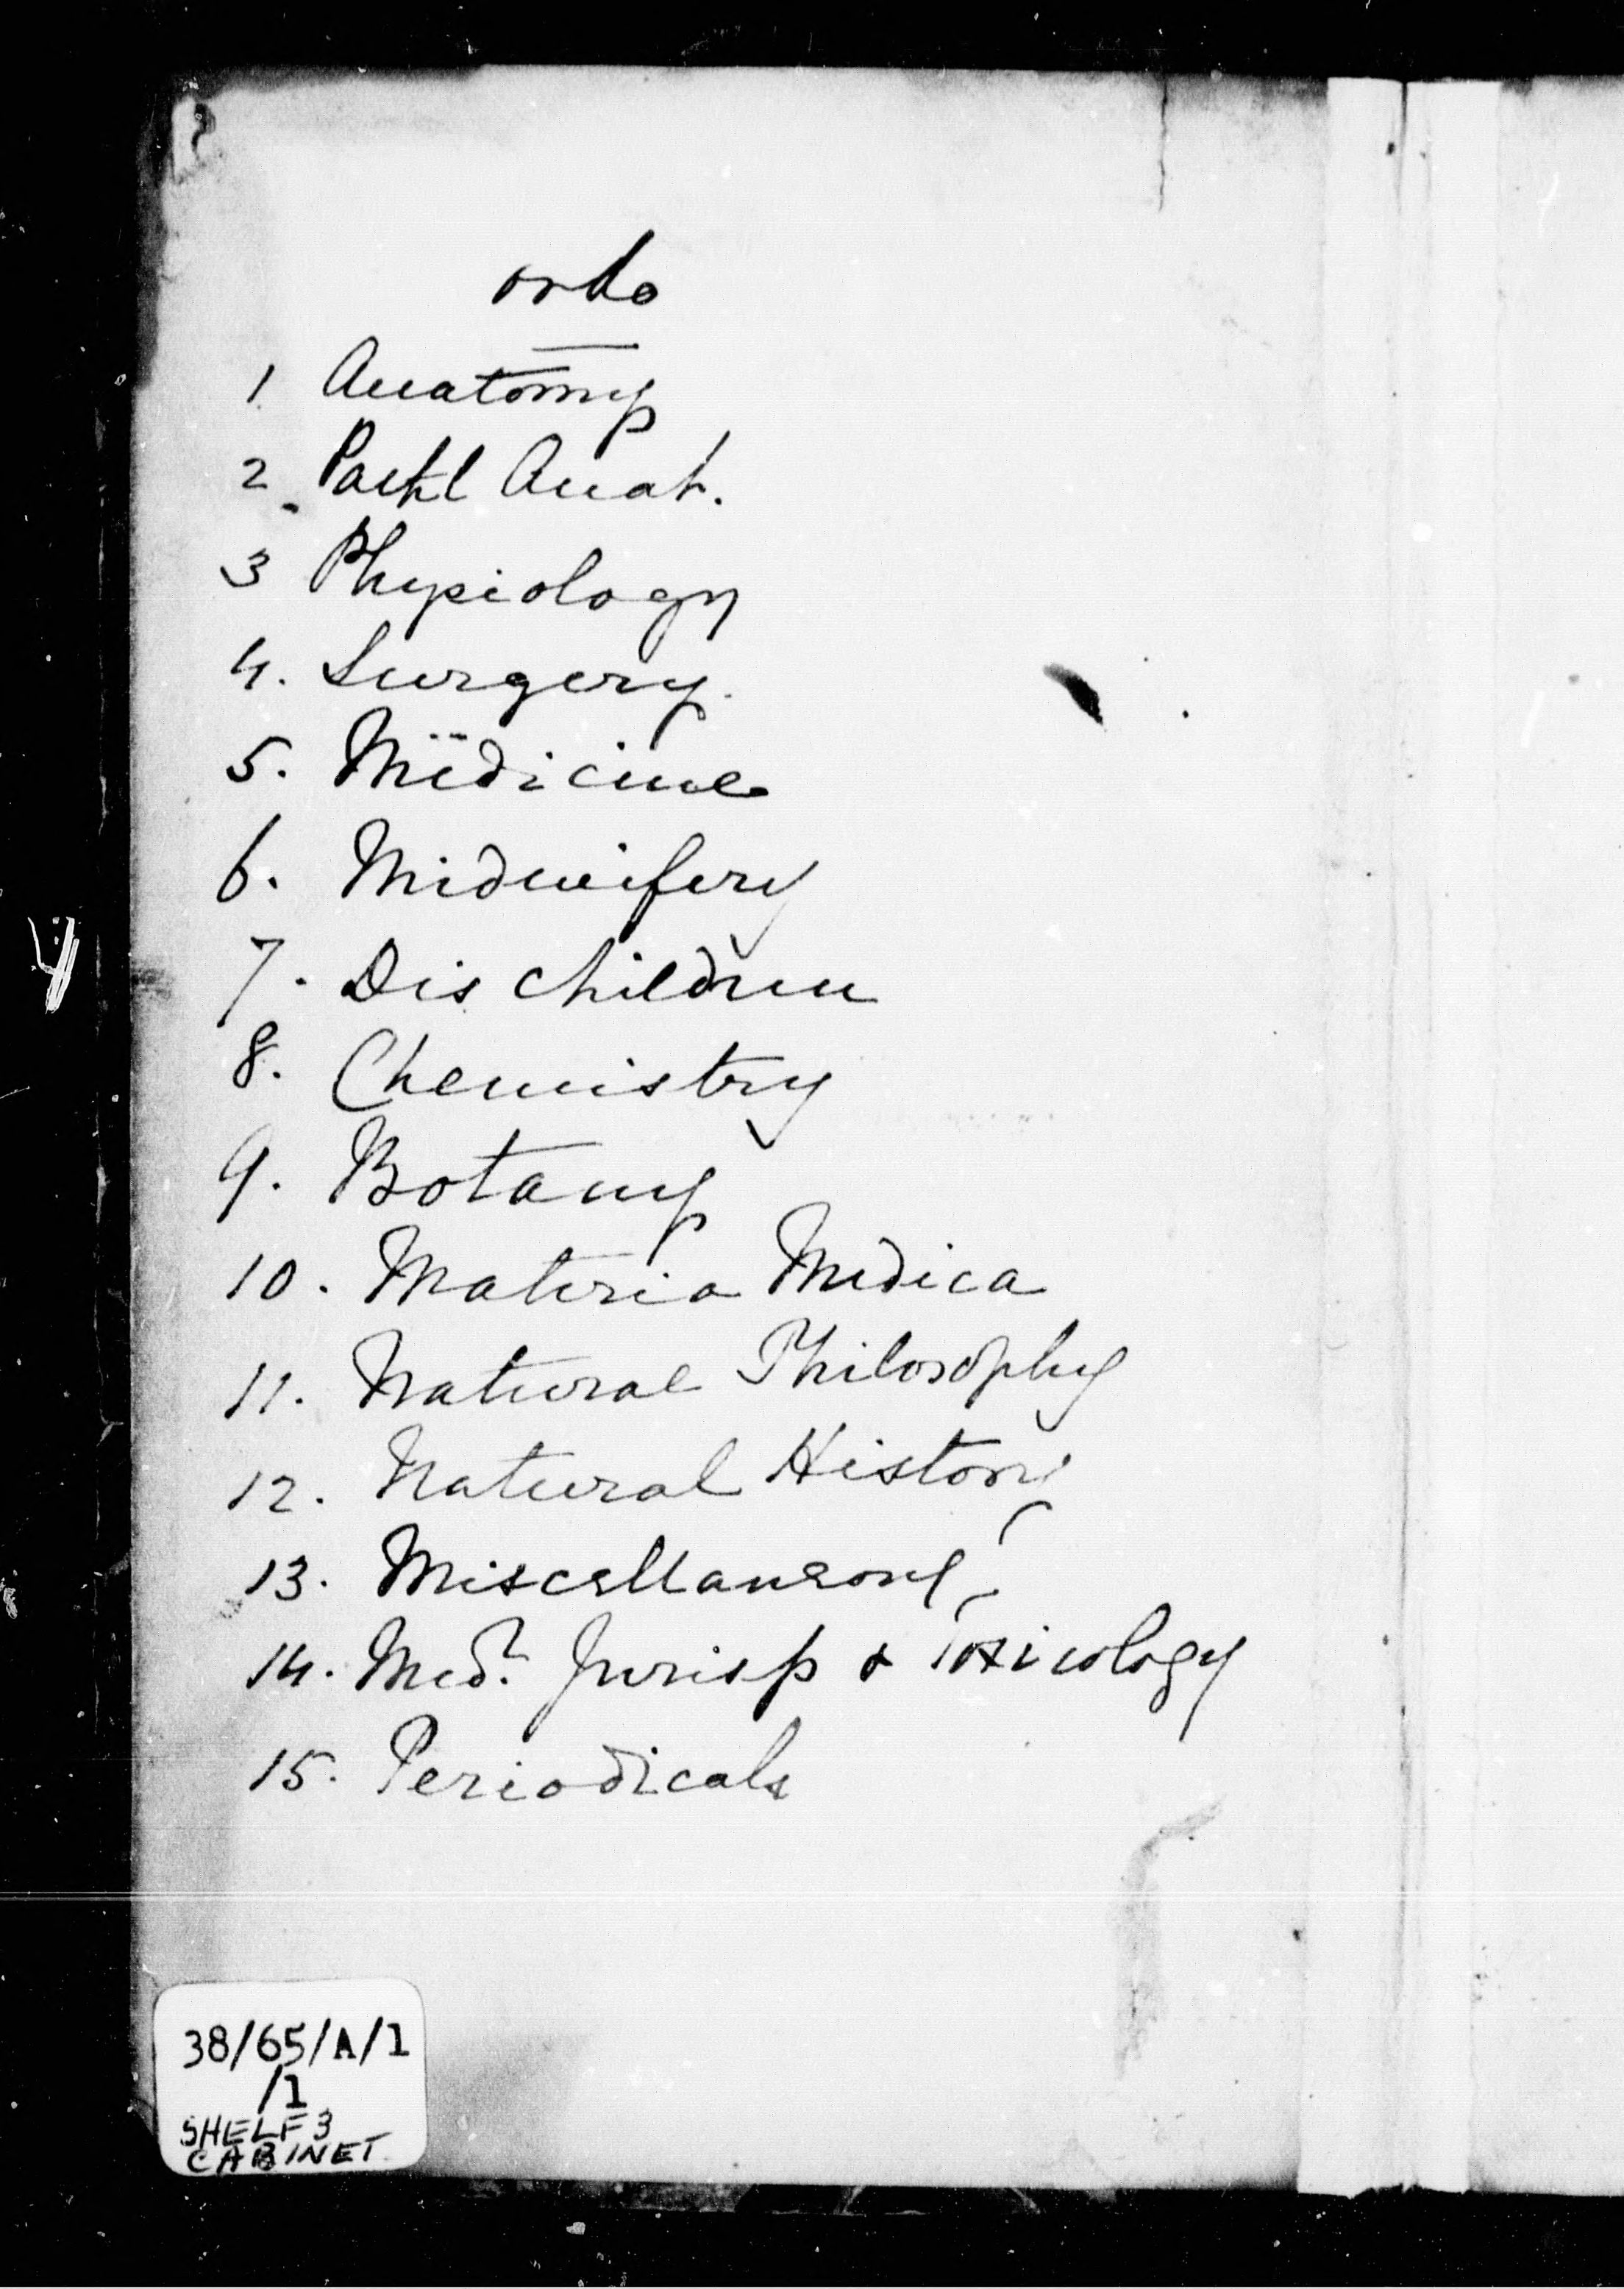 ordo
1 Anatomy
2 Pathl Anat.
3 Physiology
4. Surgery.
5. Medicine
6. Midwifery
7. Dis Children
8. Chemistry
9. Botany
10. Materia Medica
11. Natural Philosophy
12. Natural History
13. Miscellaneous
14. Med. Jurisp & Toxicology
15. Periodicals
38/65/A/1
/1
SHELF 3
CABINET